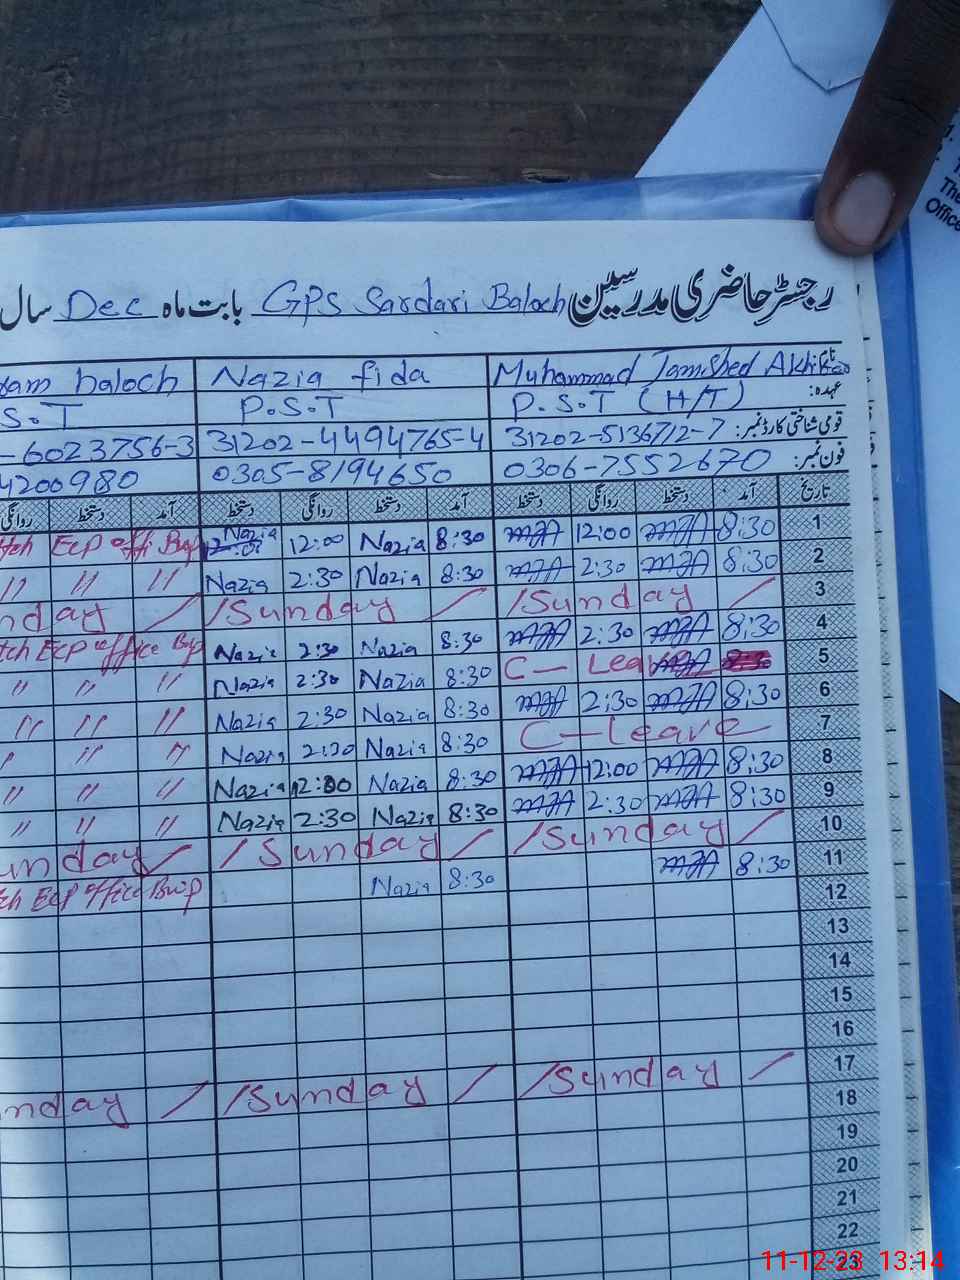 The
Office
رجسٹر حاضری مدرسین GPS Sardari Baloch بابت ماہ Dec سال
نام: Muhammad Jamshed Akhtar Nazia fida baloch
عہدہ: P.S.T (H/T) P.S.T S.T
قومی شناختی کارڈ نمبر: 31202-5136712-7 31202-4494765-4 -6023756-3
فون نمبر: 0306-7552670 0305-8194650 4200980
تاریخ آمد دستخط روانگی دستخط آمد دستخط روانگی دستخط آمد دستخط روانگی
1 8:30 12:00 8:30 Nazia 12:00 Nazia Ecp office Bwp
2 8:30 2:30 8:30 Nazia 2:30 Nazia // // //
3 /Sunday / /Sunday / nday /
4 8:30 2:30 8:30 Nazia 2:30 Nazia Ecp office Bwp
5 C-Leave 8:30 Nazia 2:30 Nazia // // //
6 8:30 2:30 8:30 Nazia 2:30 Nazia // // //
7 C-Leave 8:30 Nazia 2:30 Nazia // // //
8 8:30 12:00 8:30 Nazia 12:00 Nazia // // //
9 8:30 2:30 8:30 Nazia 2:30 Nazia // // //
10 /Sunday / /Sunday / unday /
11 8:30 8:30 Nazia Ecp office Bwp
12
13
14
15
16
17 /Sunday / /Sunday / nday /
18
19
20
21
22
23
11-12-23 13:14